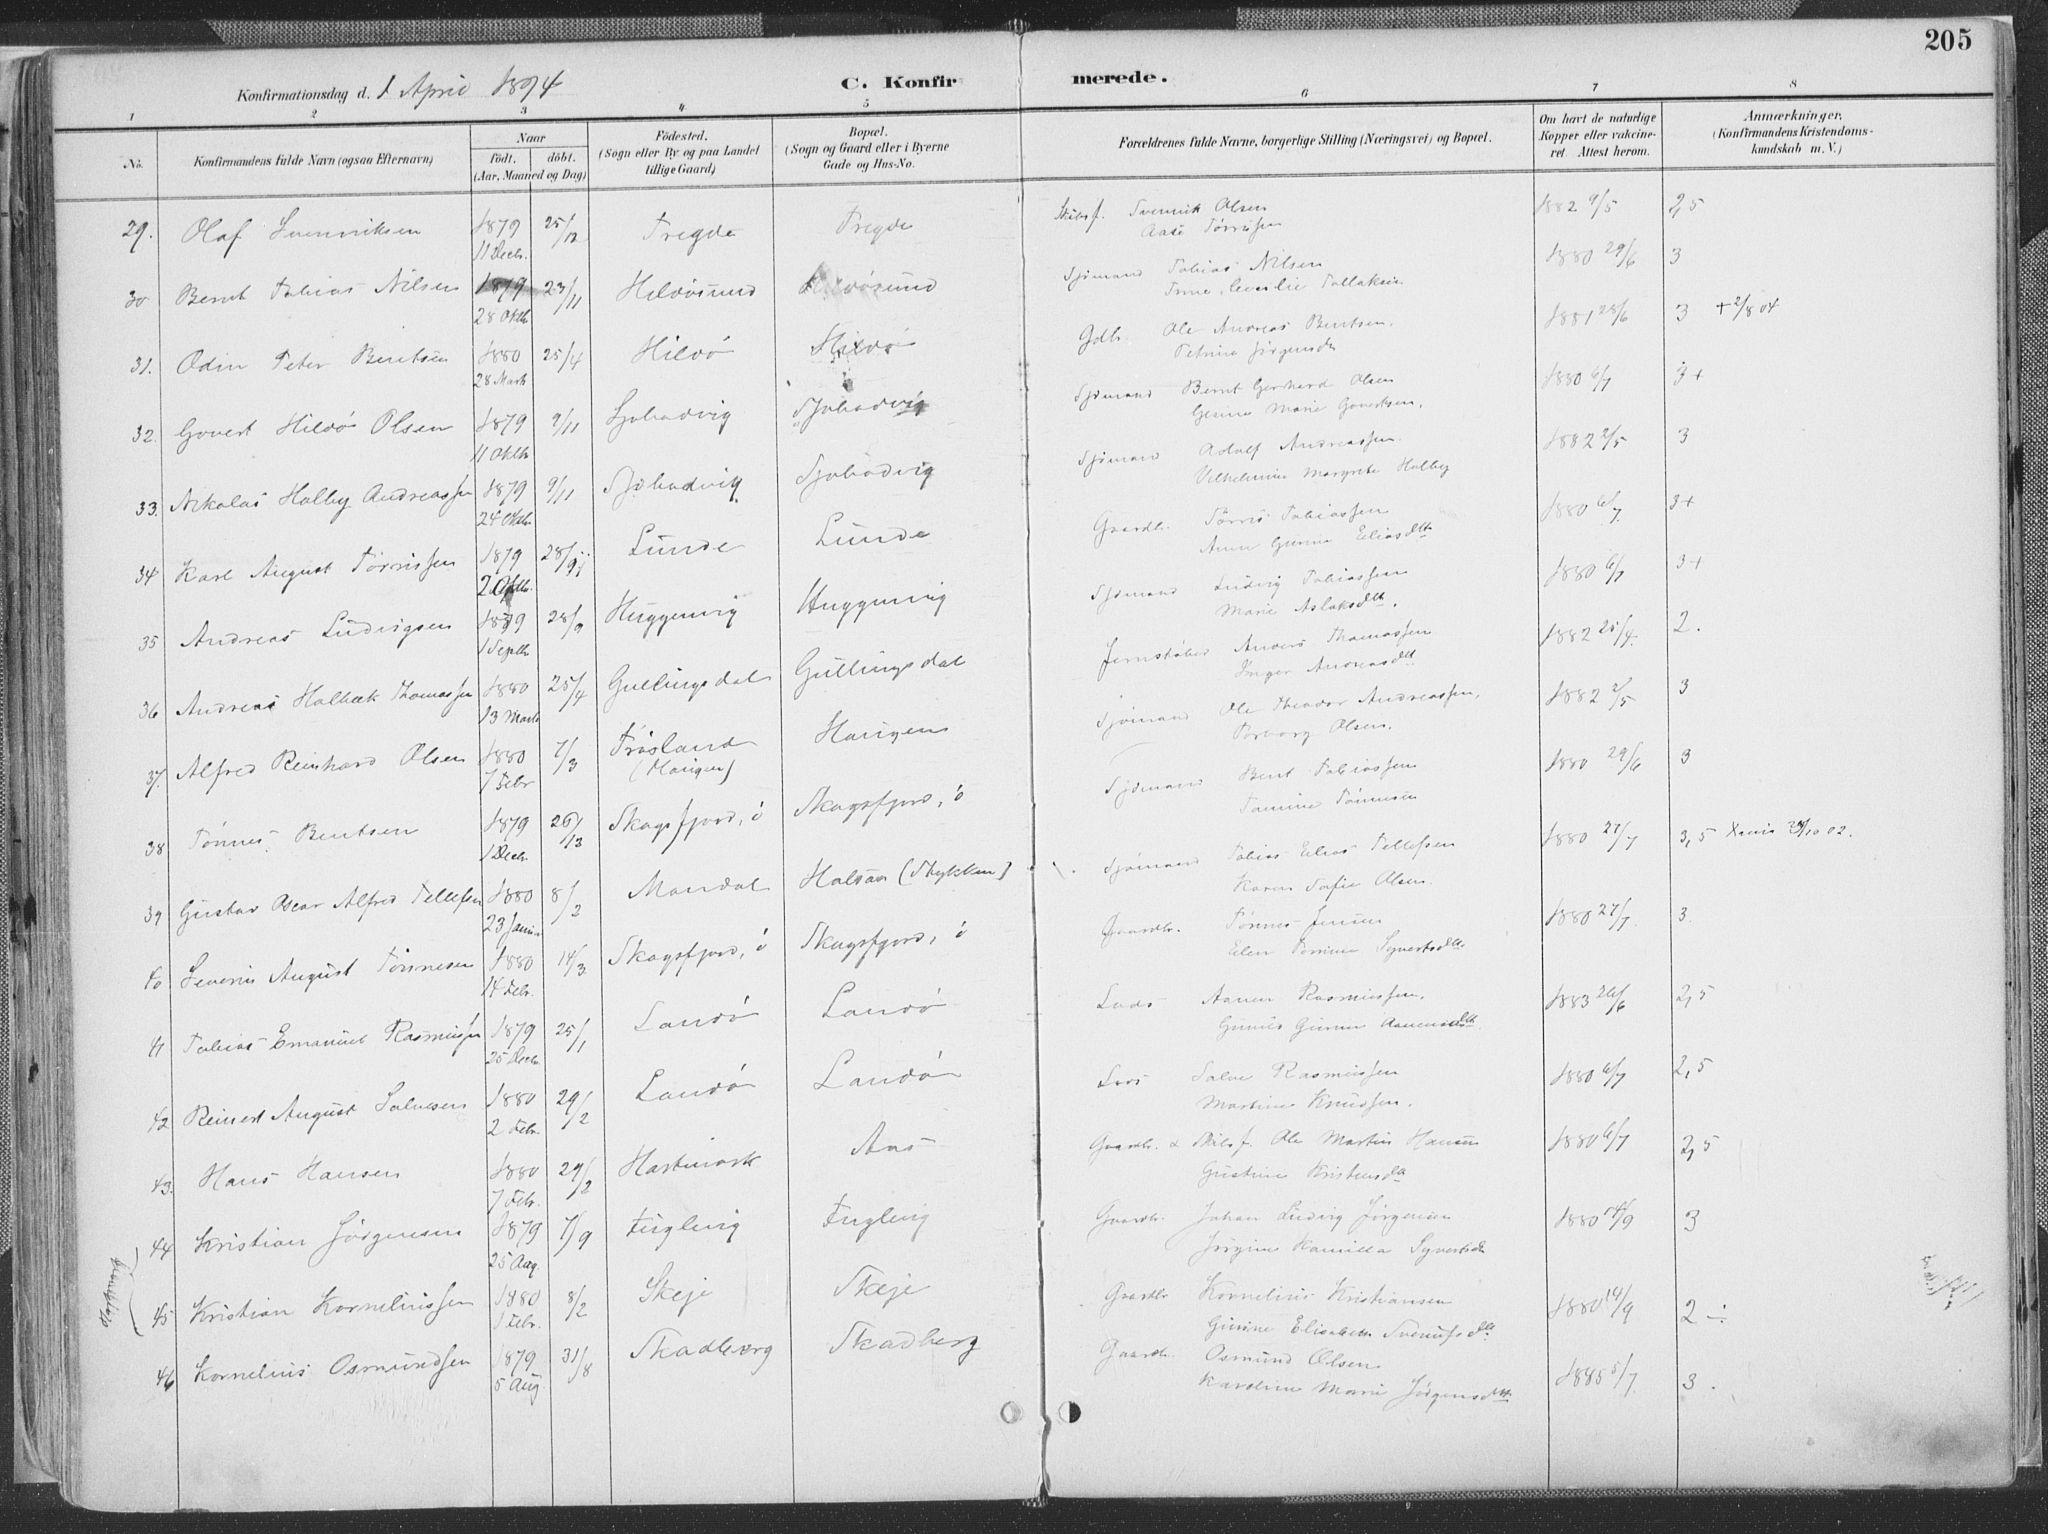 205
Konfirmationsdag d. 1 April 1894
C. Konfirmerede.
1 2 3 4 5 6 7 8
No.
Konfirmandens fulde Navn (ogsaa Efternavn)
Naar
födt. döbt.
(Aar, Maaned og Dag)
Födested.
(Sogn eller By og paa Landet
tillige Gaard)
Bopæl.
(Sogn og Gaard eller i Byerne
Gade og Hus-No.
Forældrenes fulde Navne, borgerlige Stilling (Næringsvei) og Bopæl.
Om havt de naturlige
Kopper eller vakcine-
ret. Attest herom.
Anmærkninger.
(Konfirmandens Kristendoms-
kundskab m. V.)
29. Olaf Svenniksen 1879 11 Decbr. 25/12 Tregde Tregde Skibsf. Svennik Olsen 1882 9/5 2,5
Aase Tørrisen
30 Bernt Tobias Nilsen 1879 28 Oktb. 23/11 Hildøsund Hildøsund Sjømand Tobias Nilsen 1880 29/6 3
Cecilie Tallaksen
31. Odin Peter Berntsen 1880 28 Marts 25/4 Hildø Hildø Gdbr. Ole Andreas Berntsen. 1881 28/6 3 + 2/8 04
Petrine Jörgensdr
32. Govert Hildø Olsen 1879 11 Oktb. 9/11 Sjøbodvig Sjøbodvig Sjømand Bernt Gerhard Olsen 1880 6/7 3+
Gesine Marie Govertsen.
33. Nikolai Holby Andreassen 1879 24 Oktb. 9/11 Sjøbodvig Sjøbodvig Sjømand Adolf Andreassen. 1882 2/5 3
Vilhelmine Margrete Holby
34 Karl August Tørrissen 1879 28/9 Lunde Lunde Gaardb. Tørris Tobiassen 1880 6/7. 3+
Anne Gunne Eliasdtr
35 Andreas Ludvigsen 1879 1 Septb. 28/9 Huggenvig Huggenvig Sjømand Ludvig Tobiassen 1880 6/7 3+
Marie Aslaksdtr.
36 Andreas Holbæk Thomassen 1880 13 Marts 25/4 Gullingsdal Gullingsdal Jernstøber Anders Thomassen 1882 25/4. 2.
Inger Andreasdtr
37. Alfred Reinhard Olsen 1880 7 Febr 7/3 Frøsland (Haugen) Haugen Sjømand Ole Theodor Andreassen. 1882 2/5 3
Torborg Olsen.
38 Tönnes Berntsen 1879 1 Decb. 26/3 Skogsfjord, ö Skogsfjord, ö Sjømand Bent Tobiassen 1880 29/6 3
Tomine Tönnesen
39 Gustav Oscar Alfred Tellefsen 1880 23 Januar 8/2 Mandal Halsaa (Stykken) Sjømand Tobias Elias Tellefsen 1880 27/7 3,5
Karen Sofie Olsen.
40 Severin August Tönnesen 1880 14 Febr. 14/3. Skogsfjord, ö Skogsfjord, ö Gaardbr. Tönnes Jensen 1880 27/7. 3.
Elen Tomine Syvertsdtr.
41 Tobias Emanuel Rasmussen 1879 25 Decbr. 25/1 Landö Landö Lods Aanen Rasmussen. 1883 26/6 2,5
Gunne Aanensdtr.
42 Reinert August Salvesen 1880 2 Febr. 29/2 Landö Landö Lods Salve Rasmussen 1880 6/7 2,5
Martine Knudsen.
43. Hans Hansen 1880 7 Febr. 29/2 Hartmark Aas Gaardbr. & Skibsf. Ole Martin Hansen 1880 6/7 2,5
Gustine Kristensdtr
44 Kristian Jørgensen 1879 25 Aug. 7/9 Fuglevig Fuglevig Gaardbr. Johan Ludvig Jørgensen 1880 14/9 3
Jørgine Kamilla Syvertsdr
45 Kristian Kornelinssen 1880 1 Febr. 8/2 Skeje Skeje Gaardbr Kornelius Kristiansen 1880 14/9 2 ÷
Gunne Elisabeth
46 Kornelius Osmundsen 1879 5 Aug 31/8 Skadberg Skadberg Gaardb. Osmund Olsen 1885 5/7. 3.
Karoline Marie Jørgensdtr.